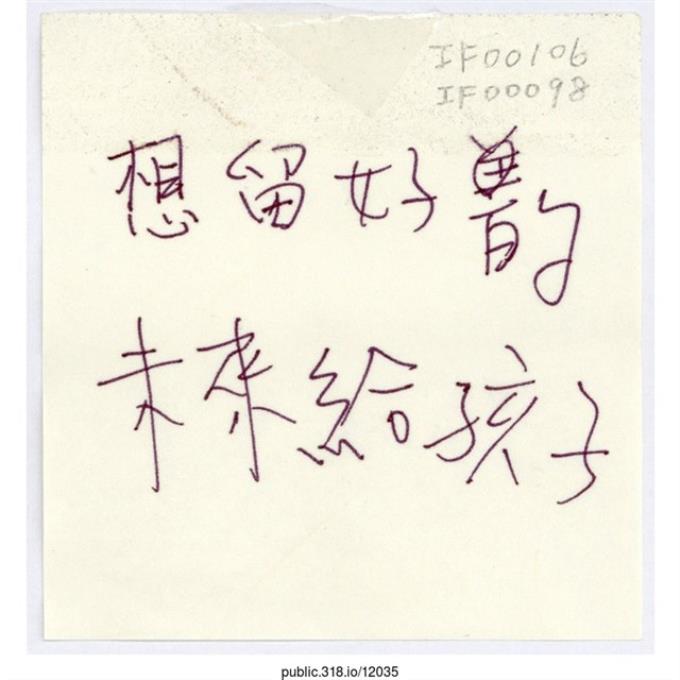 IF00106
IF00098
想留好的
未來給孩子
public.318.io/12035